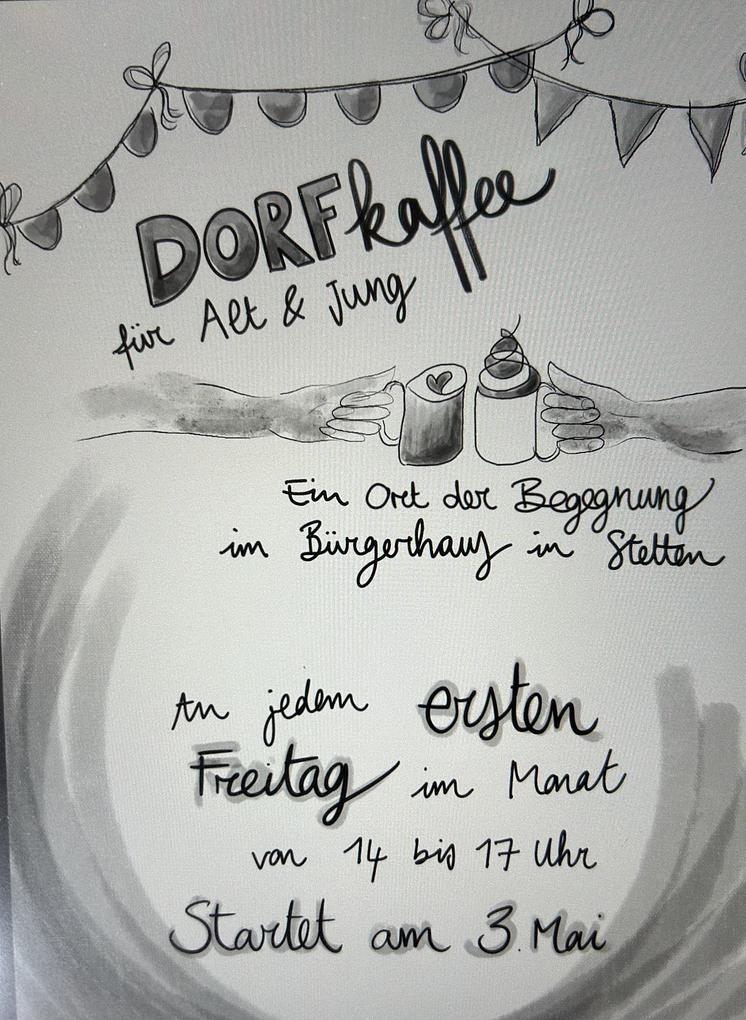 DORFkaffee
für Alt & Jung
Ein Ort der Begegnung
im Bürgerhaus in Stetten
An jedem ersten
Freitag im Monat
von 14 bis 17 Uhr
Startet am 3. Mai